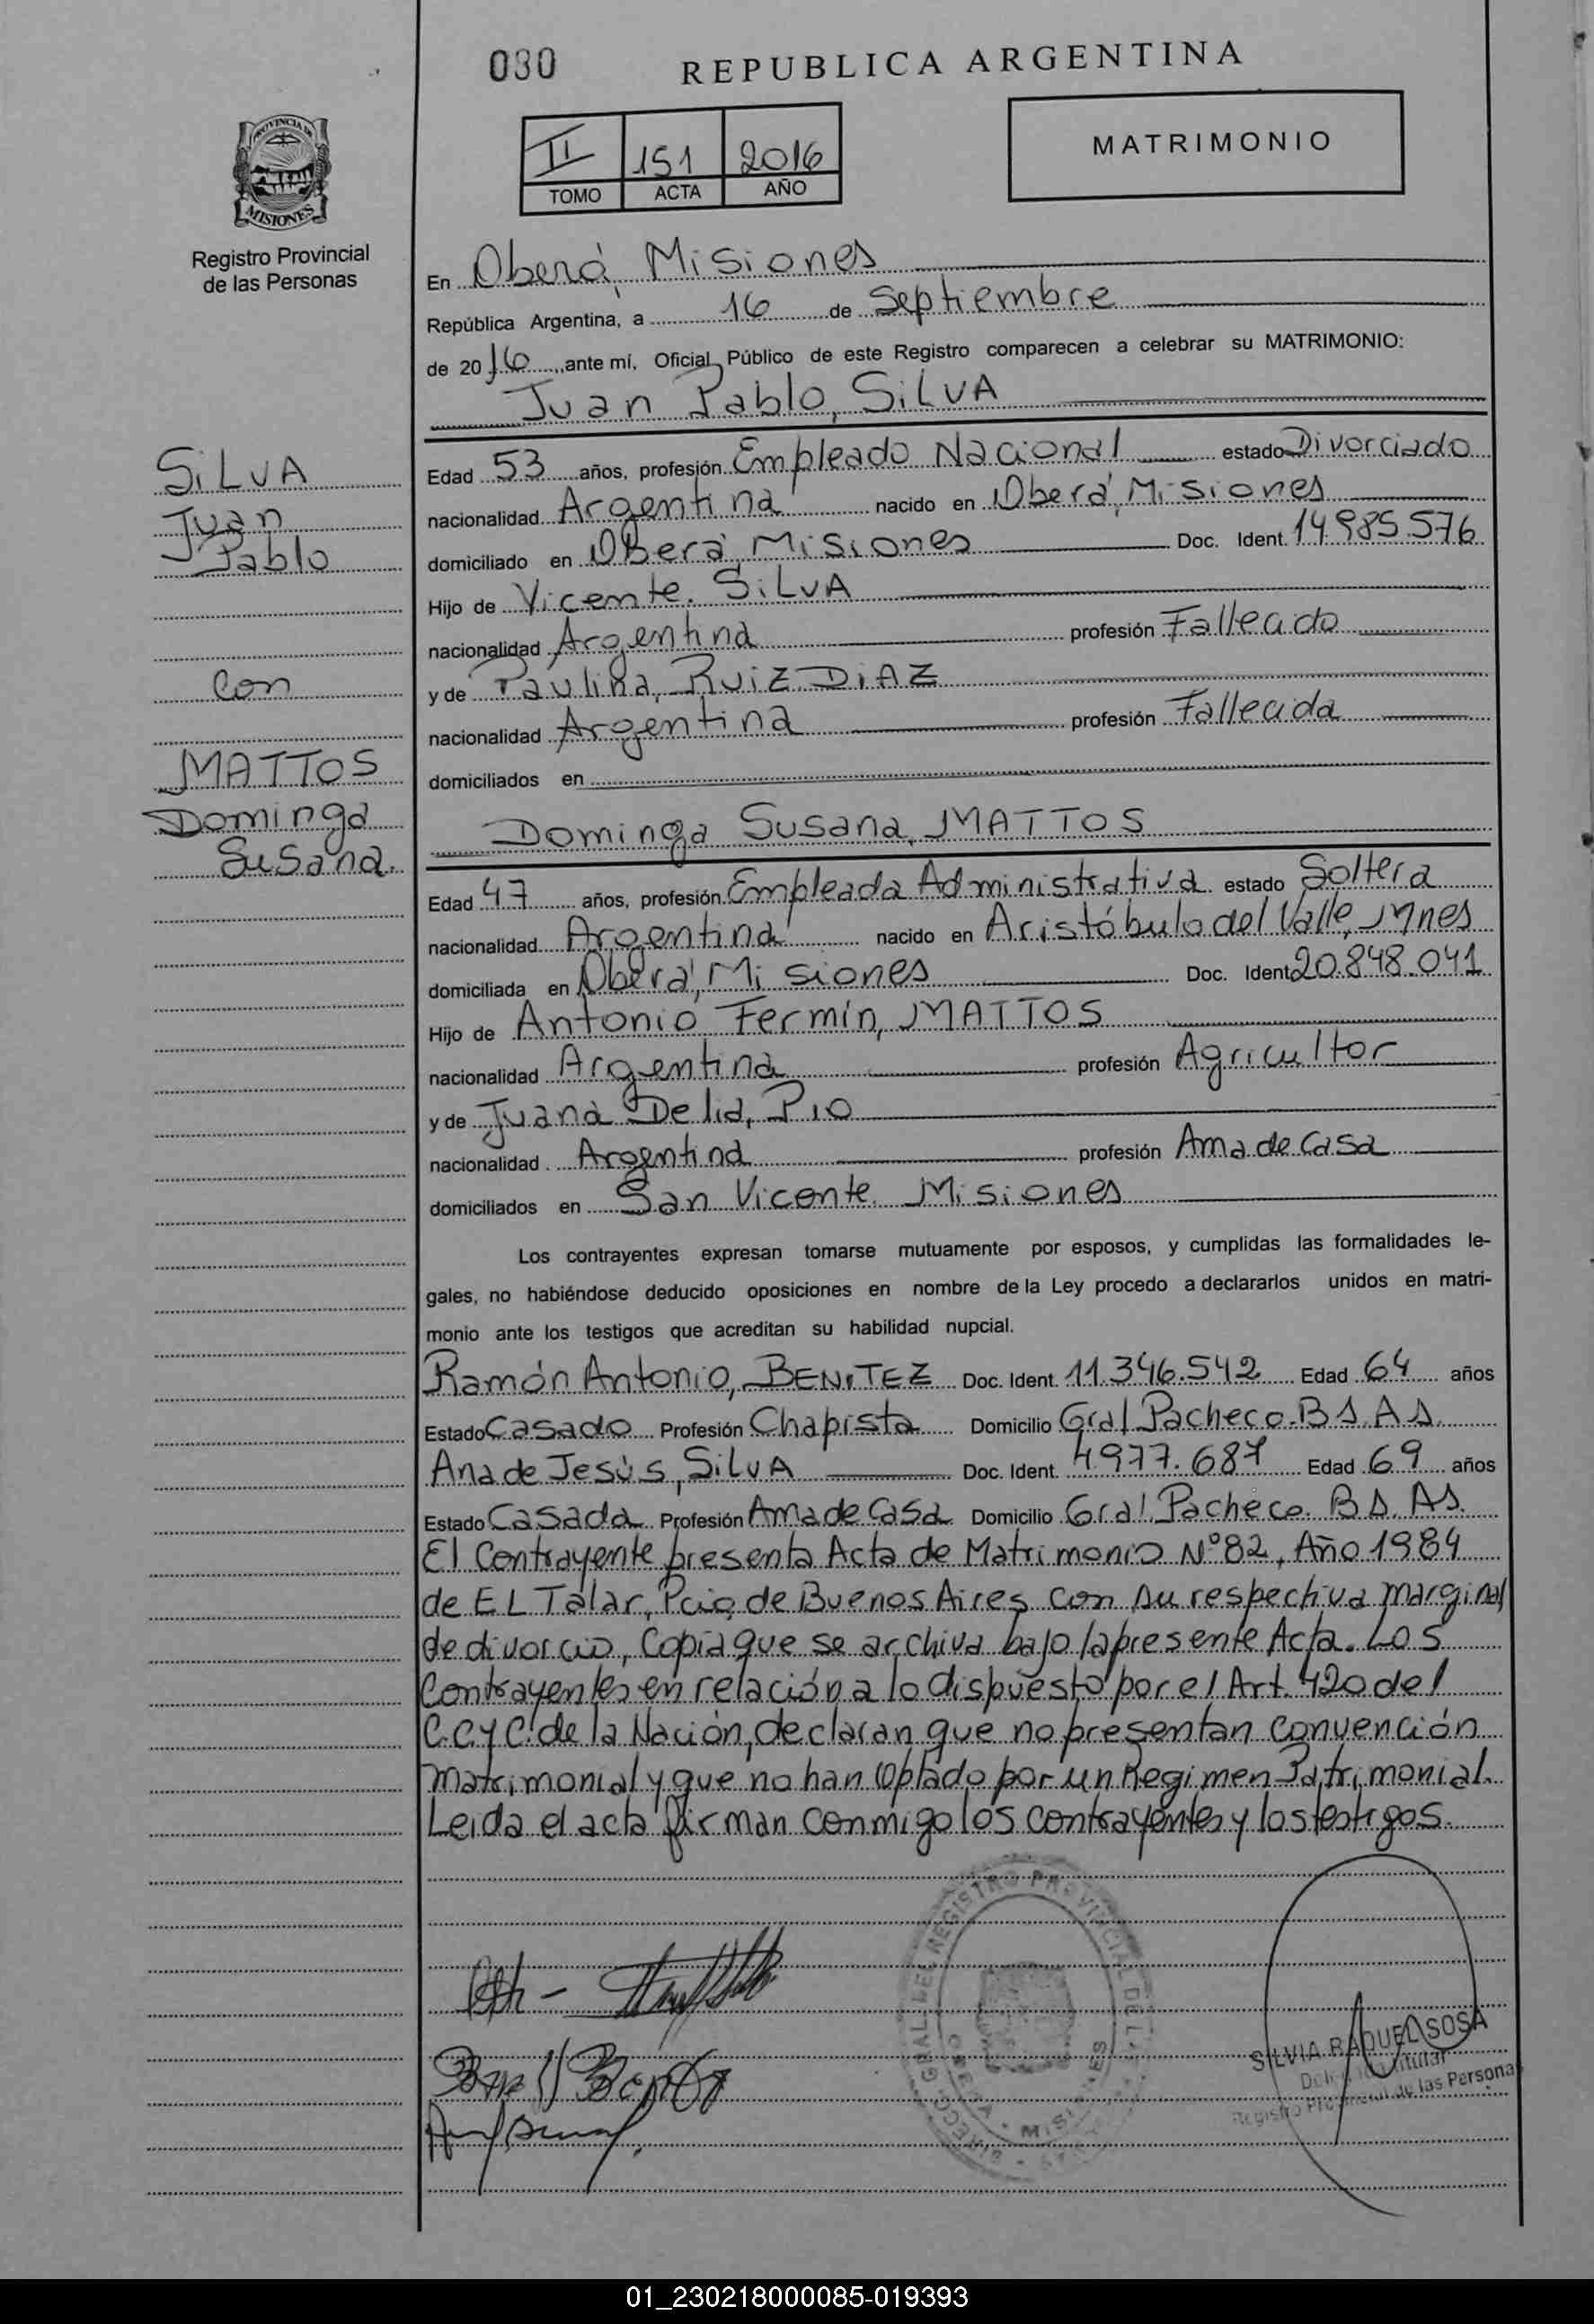 030
REPUBLICA ARGENTINA
II 151 2016
TOMO ACTA AÑO
MATRIMONIO
PROVINCIA DE
MISIONES
Registro Provincial
de las Personas
En Oberá, Misiones
República Argentina, a 16 de Septiembre
de 2016, ante mí, Oficial Público de este Registro comparecen a celebrar su MATRIMONIO:
Juan Pablo, SILVA
SILVA
Juan
Pablo
con
MATTOS
Dominga
Susana.
Edad 53 años, profesión Empleado Nacional estado Divorciado
nacionalidad Argentina nacido en Oberá, Misiones
domiciliado en Oberá, Misiones Doc. Ident. 14.985.576
Hijo de Vicente. SILVA
nacionalidad Argentina profesión Fallecido
y de Paulina, RUIZ DIAZ
nacionalidad Argentina profesión Fallecida
domiciliados en
Dominga Susana, MATTOS
Edad 47 años, profesión Empleada Administrativa estado Soltera
nacionalidad Argentina nacido en Aristóbulo del Valle, Mnes
domiciliada en Oberá, Misiones Doc. Ident. 20.848.041
Hijo de Antonio Fermín, MATTOS
nacionalidad Argentina profesión Agricultor
y de Juana Delia, PIO
nacionalidad Argentina profesión Ama de Casa
domiciliados en San Vicente. Misiones
Los contrayentes expresan tomarse mutuamente por esposos, y cumplidas las formalidades le-
gales, no habiéndose deducido oposiciones en nombre de la Ley procedo a declararlos unidos en matri-
monio ante los testigos que acreditan su habilidad nupcial.
Ramón Antonio, BENITEZ Doc. Ident. 11.346.542 Edad 64 años
Estado Casado Profesión Chapista Domicilio Gral Pacheco. BS. AS.
Ana de Jesús, SILVA Doc. Ident. 4977.687 Edad 69 años
Estado Casada Profesión Ama de Casa Domicilio Gral. Pacheco. BS. AS.
El Contrayente presenta Acta de Matrimonio N°82, Año 1984
de EL Talar, Pcia de Buenos Aires con su respectiva marginal
de divorcio, Copia que se archiva bajo la presente Acta. Los
Contrayentes en relación a lo dispuesto por el Art. 420 del
C.C y C. de la Nación, declaran que no presentan convención
matrimonial y que no han optado por un Regimen Patrimonial.
Leida el acta firman conmigo los contrayentes y los testigos.
SILVIA RAQUEL SOSA
Titular
Registro Provincial de las Persona
01_230218000085-019393